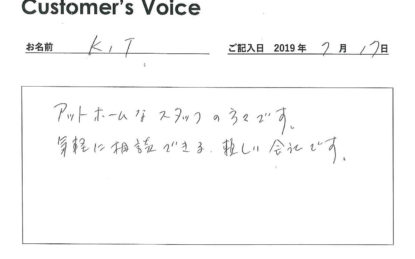 Customer's Voice
お名前 K.T ご記入日 2019年 7月 17日
アットホームなスタッフの方々です。
気軽に相談できる、親しい会社です。